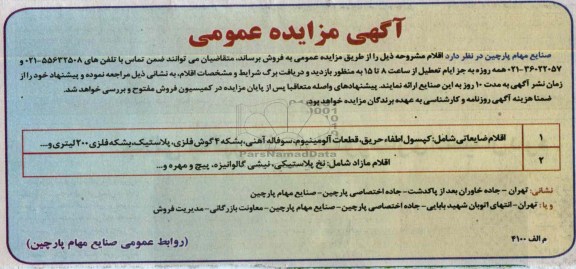 آگهی مزایده عمومی
صنایع مهام پارچین در نظر دارد اقلام مشروحه ذیل را از طریق مزایده عمومی به فروش برساند، متقاضیان می توانند ضمن تماس با تلفن های ۵۵۶۳۲۵۰۸-۰۲۱ و
۳۶۰۲۲۰۵۷-۰۲۱ همه روزه به جز ایام تعطیل از ساعت ۸ تا ۱۵ به منظور بازدید و دریافت برگ شرایط و مشخصات اقلام، به نشانی ذیل مراجعه نموده و پیشنهاد خود را از
زمان نشر آگهی به مدت ۱۰ روز به این صنایع ارائه نمایند. پیشنهادهای واصله متعاقبا پس از پایان مزایده در کمیسیون فروش مفتوح و بررسی خواهد شد.
ضمنا هزینه آگهی روزنامه و کارشناسی به عهده برندگان مزایده خواهد بود.
۱ اقلام ضایعاتی شامل: کپسول اطفاء حریق، قطعات آلومینیوم، سوفاله آهنی، بشکه ۴ گوش فلزی، پلاستیک، بشکه فلزی ۲۰۰ لیتری و...
ParsNamadData
۲ اقلام مازاد شامل: نخ پلاستیکی، نبشی گالوانیزه، پیچ و مهره و...
نشانی: تهران - جاده خاوران بعد از پاکدشت- جاده اختصاصی پارچین- صنایع مهام پارچین
و یا: تهران- انتهای اتوبان شهید بابایی- جاده اختصاصی پارچین- صنایع مهام پارچین- معاونت بازرگانی- مدیریت فروش
م الف ۴۱۰۰
(روابط عمومی صنایع مهام پارچین)